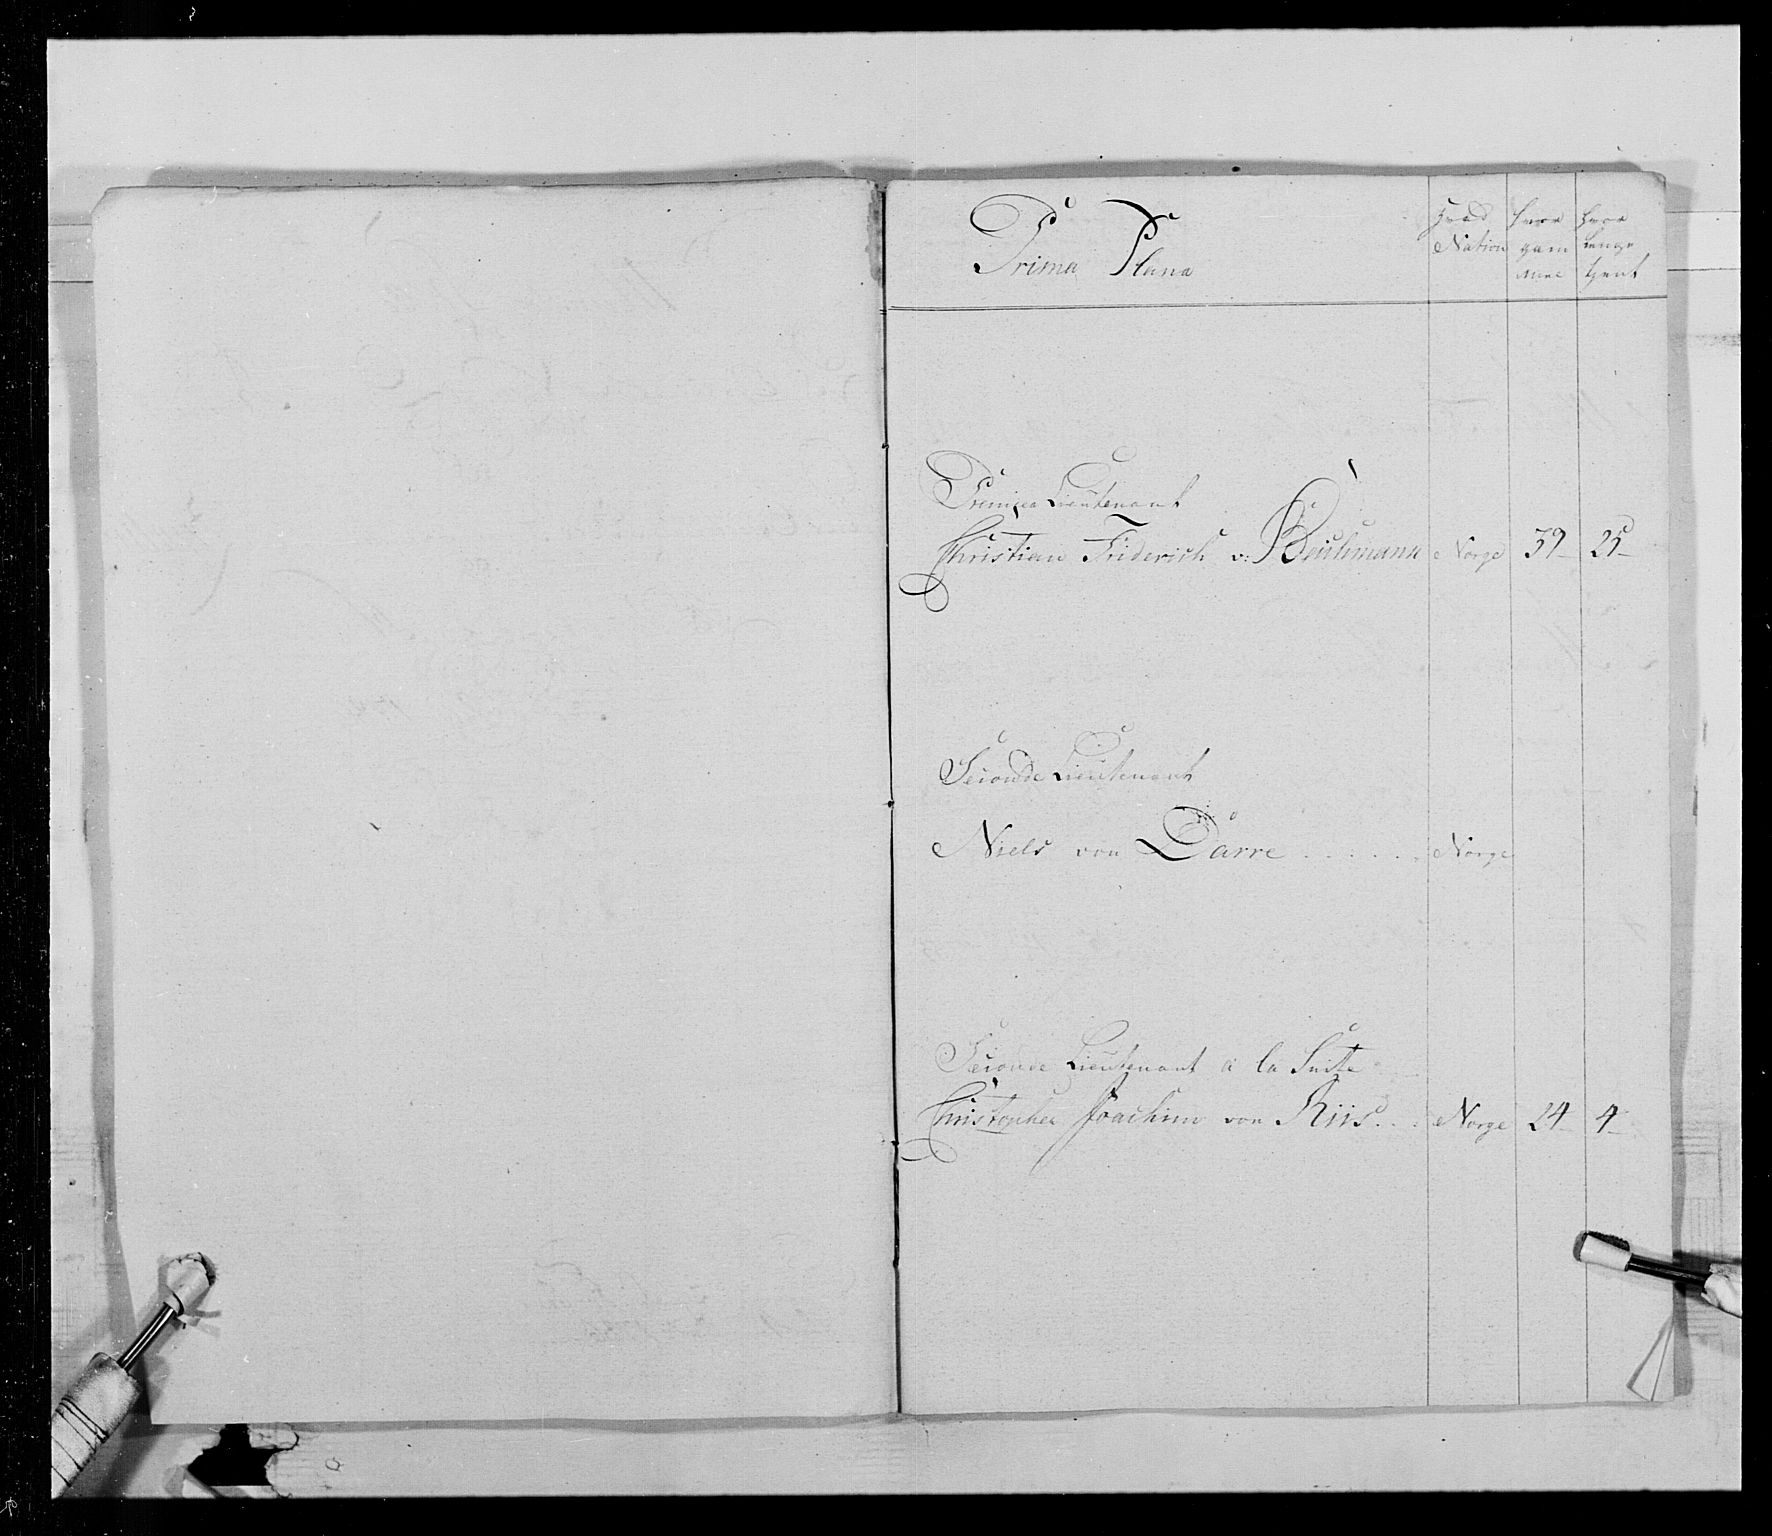 Prima Plana
Hvad Nation
hvor gammel
hvor længe tjent
Premier Lieutenant
Christian Friderich v: Norge 39 25
Seconde Lieutenant
Niels von Darre . . . . . . Norge
Seconde Lieutenant a la Suite
Christopher Joachim von Riis . . . Norge 24 4